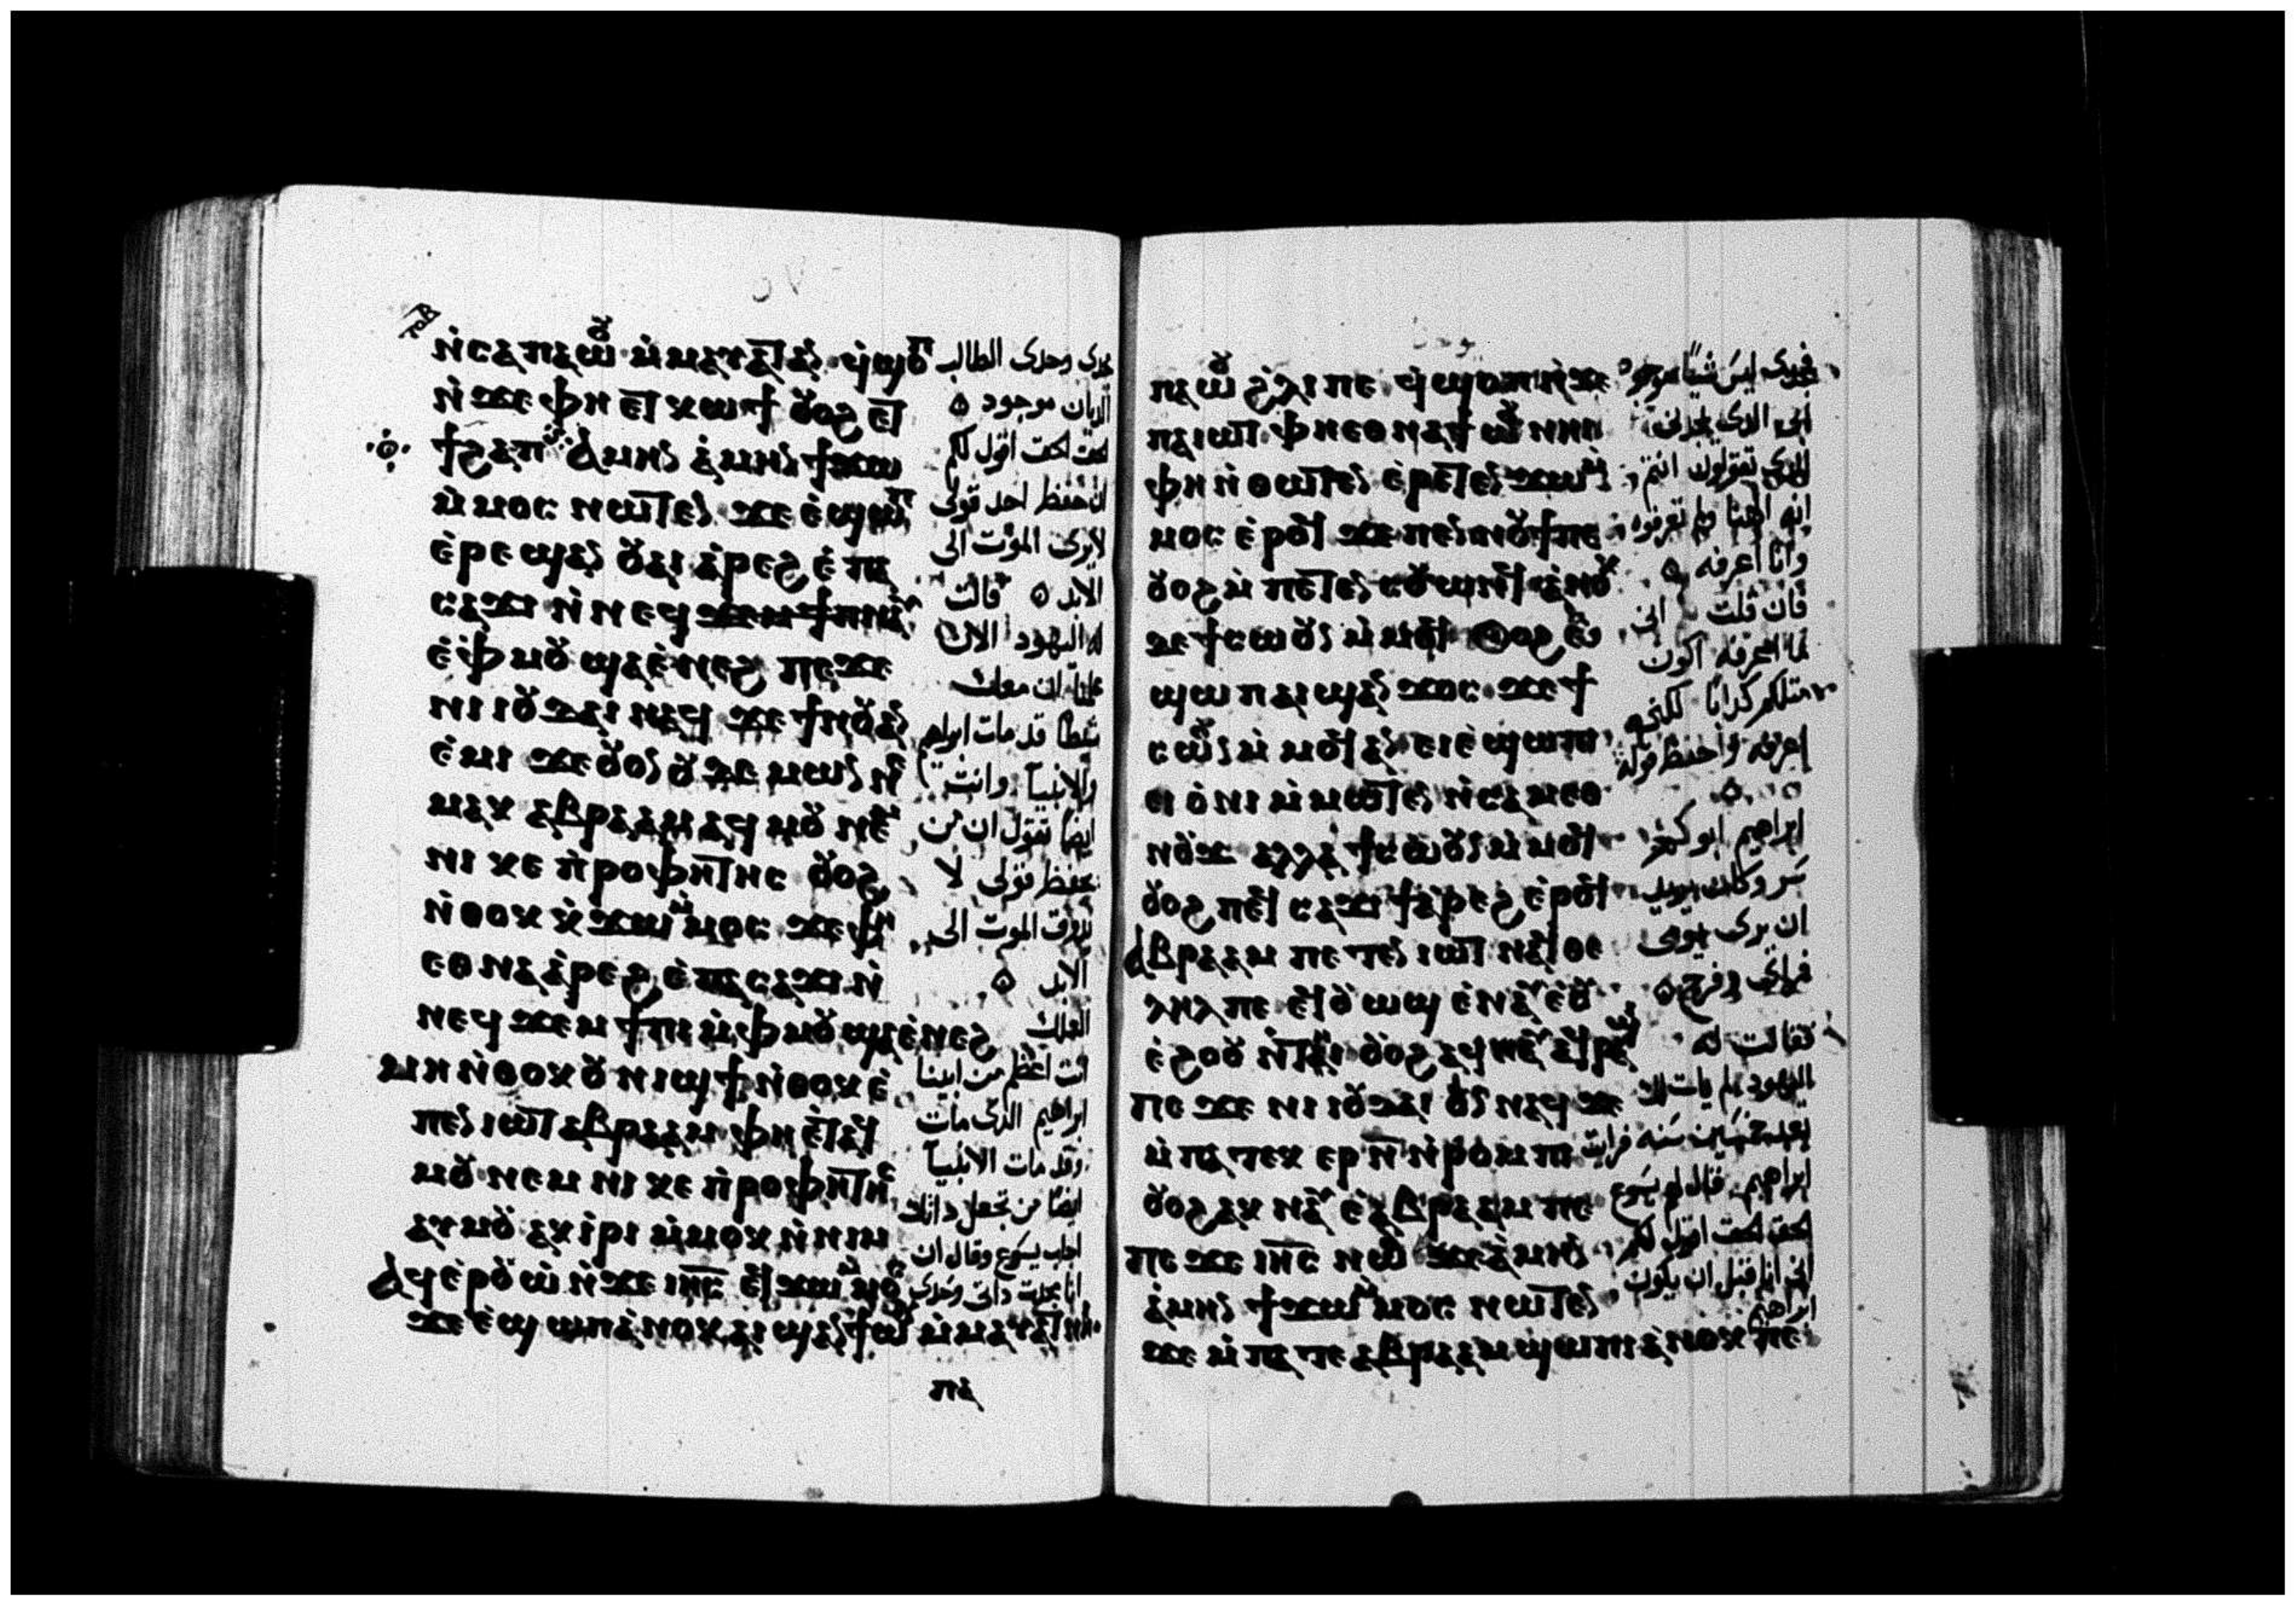 ⲧⲟⲃ
ⲛ̀ⲥⲁⲡⲁⲱⲟⲩ ⲙ̀ⲙⲁⲩⲁⲧⲁⲧ ϥ̀ϣⲟⲡ
ⲛ̀ϫⲉ ⲫⲏ ⲉⲧⲕⲱϯ ⲟⲩⲟϩ ⲉⲧ
ϯϩⲁⲡ ⲁⲙⲏⲛ ⲁ̀ⲙⲏⲛ ϯϫⲱ
ⲙ̀ⲙⲟⲥ ⲛⲱⲧⲉⲛ ϫⲉ ⲉ̀ϣⲱⲡ
ⲉ̀ⲣⲉϣⲁⲛ ⲟⲩⲁⲓ ⲁ̀ⲣⲉϩ ⲉ̀ⲡⲁ
ⲥⲁϫⲓ ⲛ̀ⲛⲉϥϫⲉⲙϯⲡⲓ
ⲙ̀ⲫⲙⲟⲩ ϣⲁⲉ̀ⲛⲉϩ ⲡⲉϫⲉ
ⲛⲓⲓⲟⲩⲇⲁⲓ ⲛⲁϥ ϫⲉ ϯⲛⲟⲩ ⲁⲛ
ⲉ̀ⲙⲓ ϫⲉ ⲟⲩⲟⲛ ⲟⲩⲇⲉⲙⲱⲛ ⲛⲉ
ⲙⲁⲕ ⲁⲃⲣⲁⲁⲙ ⲁϥⲙⲟⲩ ⲛⲉⲙ
ⲛⲓⲕⲉⲡ̀ⲣⲟⲫⲏⲧⲏⲥ ⲟⲩⲟϩ
ⲛ̀ⲑⲟⲕ ⲕ̀ϫⲱ ⲙ̀ⲙⲟⲥ ϫⲉ ⲫⲏ
ⲉⲑⲛⲁⲁ̀ⲣⲉϩ ⲉ̀ⲡⲁⲥⲁϫⲓ ⲛ̀
ⲛⲉϥϫⲉⲙϯⲡⲓ ⲙ̀ⲫⲙⲟⲩ ϣⲁⲉ̀ⲛⲉϩ
ⲙⲏ ⲛ̀ⲑⲟⲕ ⲟⲩⲛⲓϣϯ ⲛ̀ⲑⲟⲕ ⲉ̀
ⲡⲉⲛⲓⲱⲧ ⲁⲃⲣⲁⲁⲙ ⲫⲏ ⲉ̀ⲧⲁϥ
ⲙⲟⲩ ⲛⲉⲙ ⲛⲓⲕⲉⲡ̀ⲣⲟⲫⲏⲧⲏⲥ
ⲁⲩⲙⲟⲩ ⲁⲕⲓ̀ⲣⲓ ⲙ̀ⲙⲟⲕ ⲛ̀ⲛⲓⲙ
ⲁϥⲉ̀ⲣⲟⲩⲱ̀ ⲛ̀ϫⲉ ⲓⲏⲥ ⲉϥϫⲱ ⲙ̀ⲙⲟⲥ
ϫⲉ ⲉ̀ϣⲱⲡ ⲁ̀ⲛⲟⲕ ⲁⲓϣⲁⲛϯⲱⲟⲩ ⲙ̀ⲙⲁⲩⲁⲧ
ⲡⲁ
مجدى وحدى الطالب
الديان موجود
الحق الحق اقول لكم
ان حفظ احد قولى
لا يرى الموت الى
الابد قالت
له اليهود الان
علمنا ان معك
شيطانا قد مات ابراهيم
والانبيا وانت
ايضا تقول ان من
يحفظ قولى لا
يذوق الموت الى
الابد
العلك
انت اعظم من ابينا
ابراهيم الذى مات
وقد مات الانبيا
ايضا من تجعل ذاتك
اجاب يسوع وقال ان
انا مجدت ذاتى وحدى
ⲡⲁⲱⲟⲩ ϩ̀ⲗⲓ ⲡⲉ ϥ̀ϣⲟⲡ ⲛ̀ϫⲉ
ⲡⲁⲓⲱⲧ ⲫⲏ ⲉⲑⲛⲁϯⲱⲟⲩ ⲛⲏⲓ
ⲫⲏ ⲛ̀ⲑⲱⲧⲉⲛ ⲉ̀ⲣⲉⲧⲉⲛϫⲱ ⲙ̀
ⲙⲟⲥ ⲉ̀ⲣⲟϥ ϫⲉ ⲡⲉⲛⲛⲟⲩϯ ⲡⲉ
ⲟⲩⲟϩ ⲙ̀ⲡⲉⲧⲉⲛⲥⲟⲩⲱⲛϥ ⲁ̀ⲛⲟⲕ
ⲇⲉ ϯⲥⲱⲟⲩⲛ ⲙ̀ⲙⲟϥ ⲟⲩⲟϩ ⲉ̀
ϣⲱⲡ ⲁⲓϣⲁⲛϫⲟⲥ ϫⲉ ϯ
ⲥⲱⲟⲩⲛ ⲙ̀ⲙⲟϥ ⲁⲛ ⲉⲓⲉ̀ϣⲱⲡⲓ
ⲉⲓⲟ̀ⲛⲓ ⲙ̀ⲙⲱⲧⲉⲛ ⲛ̀ⲥⲁⲙⲉⲑ
ⲛⲟⲩϫ ⲁⲗⲗⲁ ϯⲥⲱⲟⲩⲛ ⲙ̀ⲙⲟϥ
ⲟⲩⲟϩ ⲡⲉϥⲥⲁϫⲓ ϯⲁ̀ⲣⲉϩ ⲉ̀ⲣⲟϥ
ⲁⲃⲣⲁⲁⲙ ⲡⲉⲧⲉⲛⲓⲱⲧ ⲛⲁϥⲑⲉ
ⲗⲏⲗ ⲡⲉ ⲉϥⲟⲩⲱϣ ⲉ̀ⲛⲁⲩ ⲉ̀ⲟⲩ
ⲉ̀ϩⲟⲟⲩ ⲛ̀ⲧⲏⲓ ⲟⲩⲟϩ ⲁϥⲛⲁⲩ ⲁϥⲣⲁϣⲓ
ⲡⲉϫⲉ ⲛⲓⲓⲟⲩⲇⲁⲓ ⲟⲩⲛ ⲛⲁϥ ϫⲉ
ⲙ̀ⲡⲁⲧⲉⲕⲉⲣ ⲛ̅ ⲛ̀ⲣⲟⲙⲡⲓ
ⲟⲩⲟϩ ⲁⲕⲛⲁⲩ ⲉ̀ⲁⲃⲣⲁⲁⲙ
ⲡⲉϫⲉ ⲓⲏⲥ ⲛⲱⲟⲩ ϫⲉ ⲁ̀ⲙⲏⲛ
ⲁ̀ⲙⲏⲛ ϯϫⲱ ⲙ̀ⲙⲟⲥ ⲛⲱⲧⲉⲛ
ϫⲉ ⲙ̀ⲡⲁⲧⲉ ⲁⲃⲣⲁⲁⲙ ϣⲱⲡⲓ ⲁ̀ⲛⲟⲕ ⲡⲉ
فمجدى ليس شيا موجود
ابى الذى يمجدنى
الذى تقولون انتم
انه الهنا ولم تعرفوه
وانا اعرفه
فان قلت انى
لا اعرفه اكون
مثلكم كذابا لكننى
اعرفه واحفظ قوله
ابراهيم ابوكم
سر وكان يريد
ان يرى يومى
فراى وفرح
فقالت له
اليهود لم يات لك
بعد خمسين سنه فرايت
ابراهيم قال لهم يسوع
الحق الحق اقول لكم
انى انا قبل ان يكون
ابراهيم